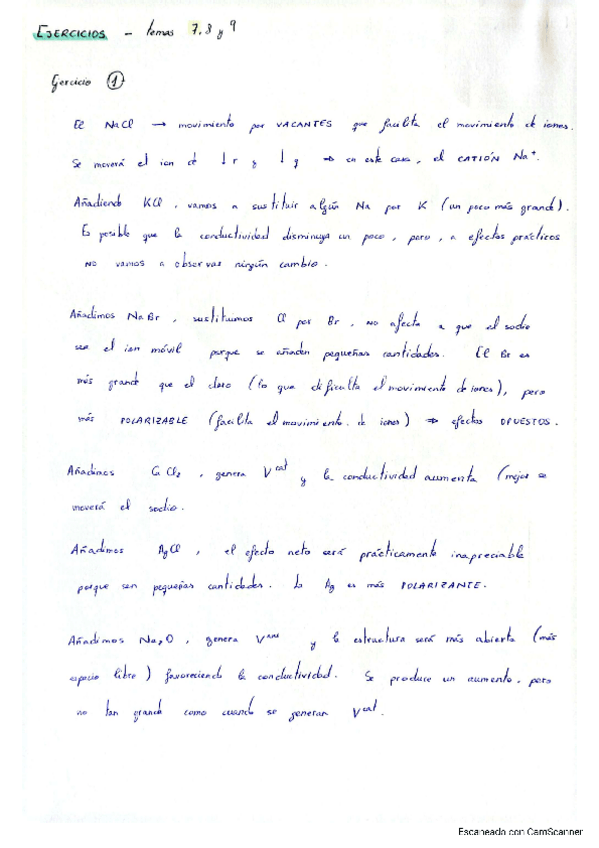 EJERCICIOS - temas 7, 8 y 9
Ejercicio 1
El NaCl → movimiento por VACANTES que facilita el movimiento de iones.
Se moverá el ion de ↓ r y ↓ q ⇒ en este caso, el CATIÓN Na⁺.
Añadiendo KCl, vamos a sustituir algún Na por K (un poco más grande).
Es posible que la conductividad disminuya un poco, pero, a efectos prácticos
NO vamos a observar ningún cambio.
Añadimos NaBr, sustituimos Cl por Br, no afecta a que el sodio
sea el ion móvil porque se añaden pequeñas cantidades. El Br es
más grande que el cloro (lo que dificulta el movimiento de iones), pero
más POLARIZABLE (facilita el movimi. de iones) ⇒ efectos OPUESTOS.
Añadimos CaCl₂, genera Vcat y la conductividad aumenta (mejor se
moverá el sodio.
Añadimos AgCl, el efecto neto será prácticamente inapreciable
porque son pequeñas cantidades. La Ag es más POLARIZANTE.
Añadimos Na₂O, genera Vani y la estructura será más abierta (más
espacio libre) favoreciendo la conductividad. Se produce un aumento, pero
no tan grande como cuando se generan Vcat.
Escaneado con CamScanner